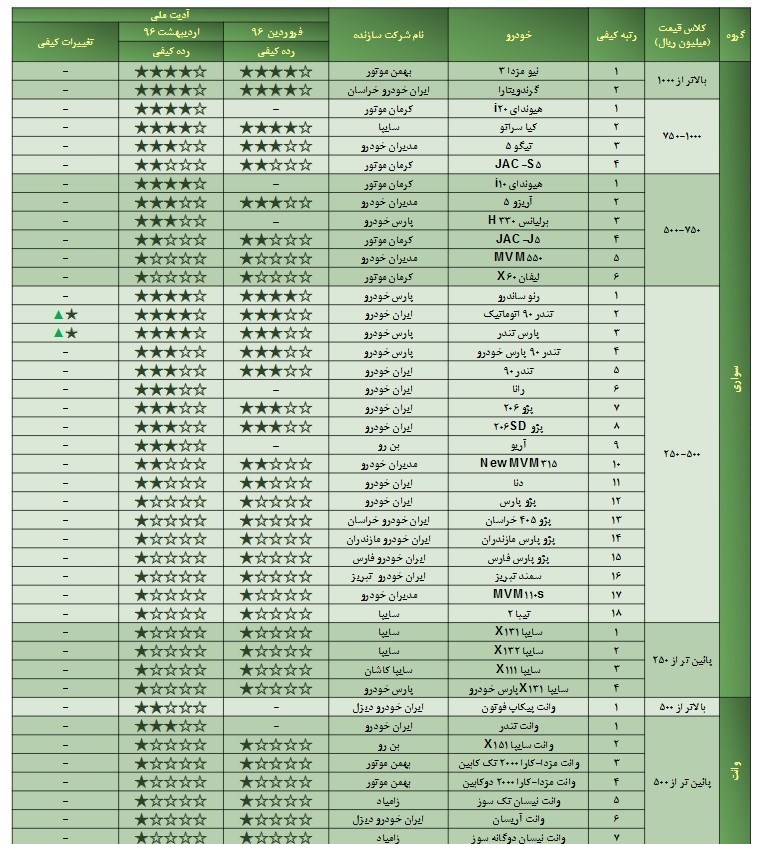 گروه کلاس قیمت (میلیون ریال) رتبه کیفی خودرو نام شرکت سازنده آدیت ملی تغییرات کیفی
فروردین ۹۶ اردیبهشت ۹۶
رده کیفی رده کیفی
سواری
بالاتر از ۱۰۰۰
۱ نیو مزدا ۳ بهمن موتور ★★★★☆ ★★★★☆ -
۲ گرندویتارا ایران خودرو خراسان ★★★★☆ ★★★★☆ -
۷۵۰-۱۰۰۰
۱ هیوندای i۲۰ کرمان موتور - ★★★★☆ -
۲ کیا سراتو سایپا ★★★★☆ ★★★★☆ -
۳ تیگو ۵ مدیران خودرو ★★★☆☆ ★★★☆☆ -
۴ JAC -S۵ کرمان موتور ★★☆☆☆ ★★☆☆☆ -
۵۰۰-۷۵۰
۱ هیوندای i۱۰ کرمان موتور - ★★★★☆ -
۲ آریزو ۵ مدیران خودرو ★★★☆☆ ★★★☆☆ -
۳ برلیانس H ۳۳۰ پارس خودرو - ★★★☆☆ -
۴ JAC -J۵ کرمان موتور ★★☆☆☆ ★★☆☆☆ -
۵ MVM۵۵۰ مدیران خودرو ★☆☆☆☆ ★☆☆☆☆ -
۶ لیفان X۶۰ کرمان موتور ★☆☆☆☆ ★☆☆☆☆ -
۲۵۰-۵۰۰
۱ رنو ساندرو پارس خودرو ★★★★☆ ★★★★☆ -
۲ تندر ۹۰ اتوماتیک ایران خودرو ★★★☆☆ ★★★★☆ ★▲
۳ پارس تندر پارس خودرو ★★★☆☆ ★★★★☆ ★▲
۴ تندر ۹۰ پارس خودرو پارس خودرو ★★★☆☆ ★★★☆☆ -
۵ تندر ۹۰ ایران خودرو ★★★☆☆ ★★★☆☆ -
۶ رانا ایران خودرو - ★★★☆☆ -
۷ پژو ۲۰۶ ایران خودرو ★★★☆☆ ★★★☆☆ -
۸ پژو ۲۰۶SD ایران خودرو ★★★☆☆ ★★★☆☆ -
۹ آریو بن رو - ★★★☆☆ -
۱۰ New MVM۳۱۵ مدیران خودرو ★★☆☆☆ ★★☆☆☆ -
۱۱ دنا ایران خودرو ★★☆☆☆ ★★☆☆☆ -
۱۲ پژو پارس ایران خودرو ★☆☆☆☆ ★☆☆☆☆ -
۱۳ پژو ۴۰۵ خراسان ایران خودرو خراسان ★☆☆☆☆ ★☆☆☆☆ -
۱۴ پژو پارس مازندران ایران خودرو مازندران ★☆☆☆☆ ★☆☆☆☆ -
۱۵ پژو پارس فارس ایران خودرو فارس ★☆☆☆☆ ★☆☆☆☆ -
۱۶ سمند تبریز ایران خودرو تبریز ★☆☆☆☆ ★☆☆☆☆ -
۱۷ MVM۱۱۰s مدیران خودرو ★☆☆☆☆ ★☆☆☆☆ -
۱۸ تیبا ۲ سایپا ★☆☆☆☆ ★☆☆☆☆ -
پائین تر از ۲۵۰
۱ سایپا X۱۳۱ سایپا ★☆☆☆☆ ★☆☆☆☆ -
۲ سایپا X۱۳۲ سایپا ★☆☆☆☆ ★☆☆☆☆ -
۳ سایپا X۱۱۱ سایپا کاشان ★☆☆☆☆ ★☆☆☆☆ -
۴ سایپا X۱۳۱ پارس خودرو پارس خودرو ★☆☆☆☆ ★☆☆☆☆ -
وانت
بالاتر از ۵۰۰
۱ وانت پیکاپ فوتون ایران خودرو دیزل - ★★☆☆☆ -
پائین تر از ۵۰۰
۱ وانت تندر ایران خودرو - ★★★☆☆ -
۲ وانت سایپا X۱۵۱ بن رو ★☆☆☆☆ ★☆☆☆☆ -
۳ وانت مزدا-کارا ۲۰۰۰ تک کابین بهمن موتور ★☆☆☆☆ ★☆☆☆☆ -
۴ وانت مزدا-کارا ۲۰۰۰ دوکابین بهمن موتور ★☆☆☆☆ ★☆☆☆☆ -
۵ وانت نیسان تک سوز زامیاد ★☆☆☆☆ ★☆☆☆☆ -
۶ وانت آریسان ایران خودرو دیزل ★☆☆☆☆ ★☆☆☆☆ -
۷ وانت نیسان دوگانه سوز زامیاد ★☆☆☆☆ ★☆☆☆☆ -